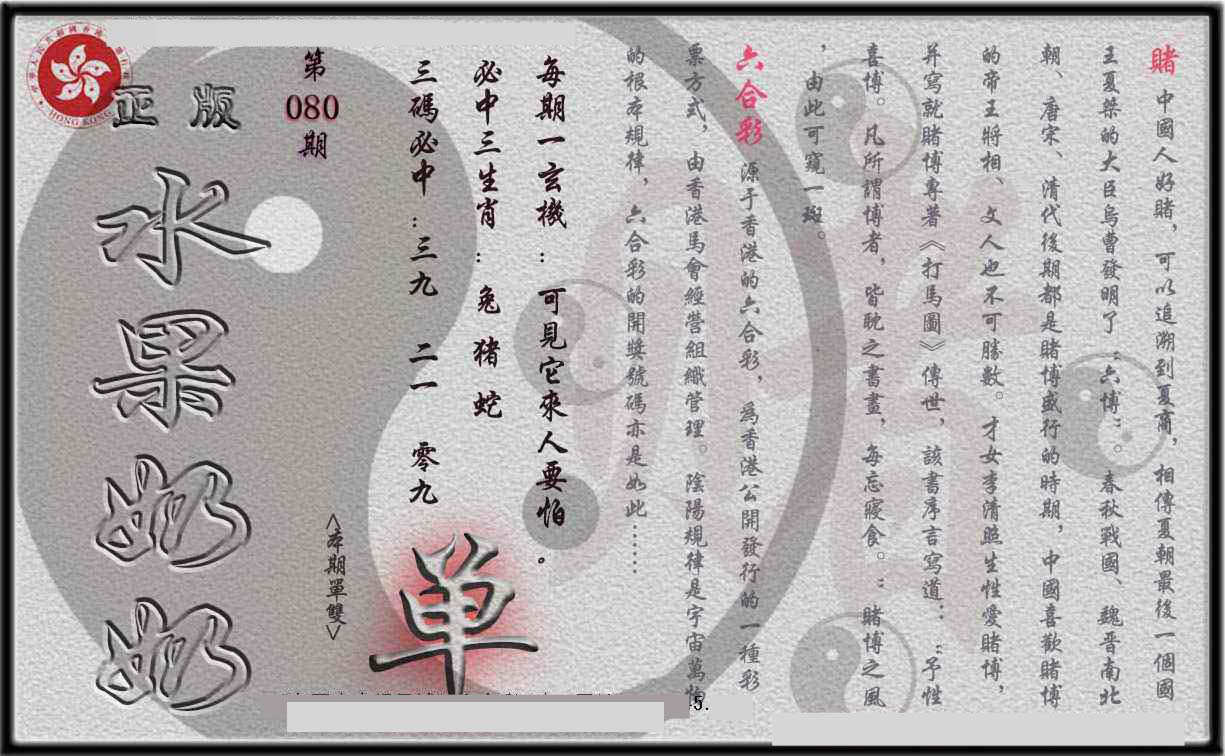 賭 中國人好賭，可以追溯到夏商，相傳夏朝最後一個國
王夏桀的大臣烏曹發明了“六博”。春秋戰國、魏晋南北
朝、唐宋、清代後期都是賭博盛行的時期，中國喜歡賭博
的帝王將相、文人也不可勝數。才女李清照生性愛賭博，
并寫就賭博專著《打馬圖》傳世，該書序言寫道：“予性
喜博。凡所謂博者，皆耽之晝，每忘寢食。”賭博之風
，由此可窺一斑。
六合彩 源于香港的六合彩，為香港公開發行的一種彩
票方式，由香港馬會經營組織管理。陰陽規律是宇宙萬物
的根本規律，六合彩的開獎號碼亦是如此……
每期一玄機：可見它來人要怕。
必中三生肖：兔 猪 蛇
三碼必中：三九 二一 零九
第
080
期
<本期單雙>
单
正版
水果奶奶
HONG KONG
5.